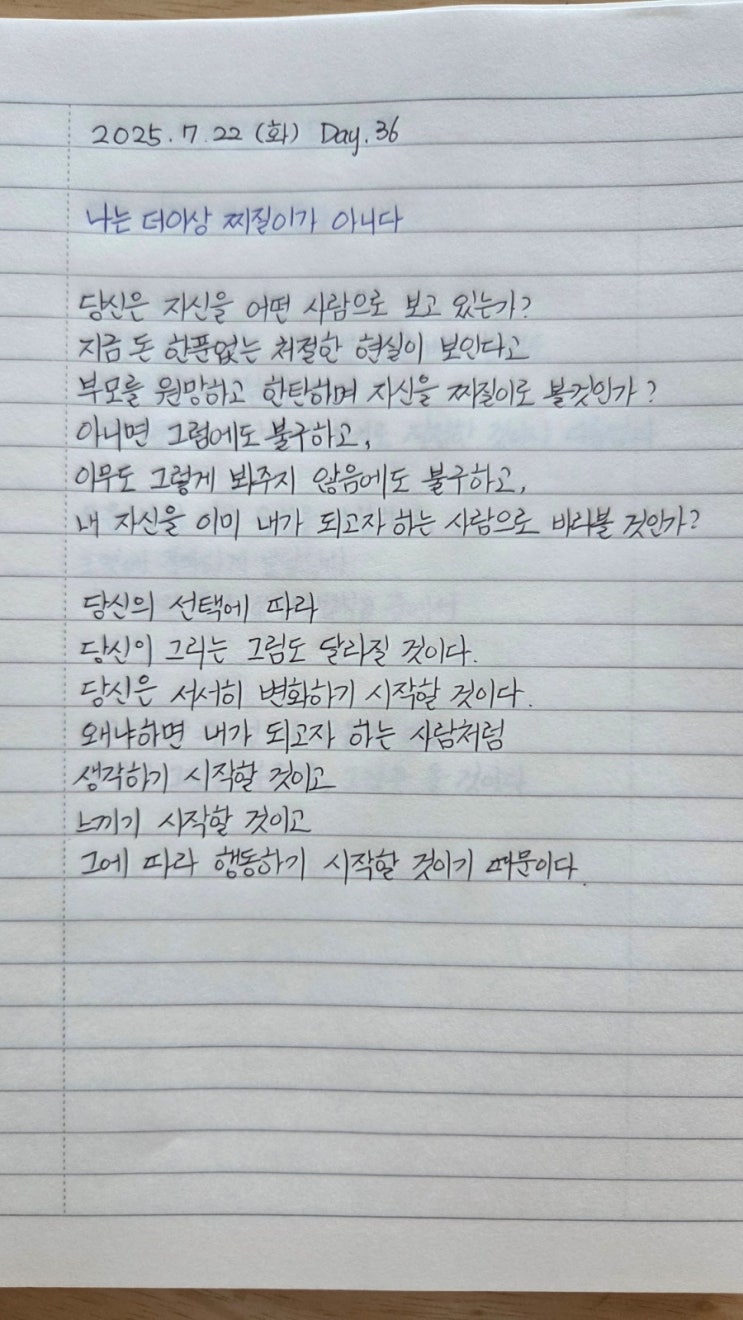 2025.7.22 (화) Day.36
나는 더이상 찌질이가 아니다
당신은 자신을 어떤 사람으로 보고 있는가?
지금 돈 한푼없는 처절한 현실이 보인다고
부모를 원망하고 한탄하며 자신을 찌질이로 볼것인가?
아니면 그럼에도 불구하고,
아무도 그렇게 봐주지 않음에도 불구하고,
내 자신을 이미 내가 되고자 하는 사람으로 바라볼 것인가?
당신의 선택에 따라
당신이 그리는 그림도 달라질 것이다.
당신은 서서히 변화하기 시작할 것이다.
왜냐하면 내가 되고자 하는 사람처럼
생각하기 시작할 것이고
느끼기 시작할 것이고
그에 따라 행동하기 시작할 것이기 때문이다.